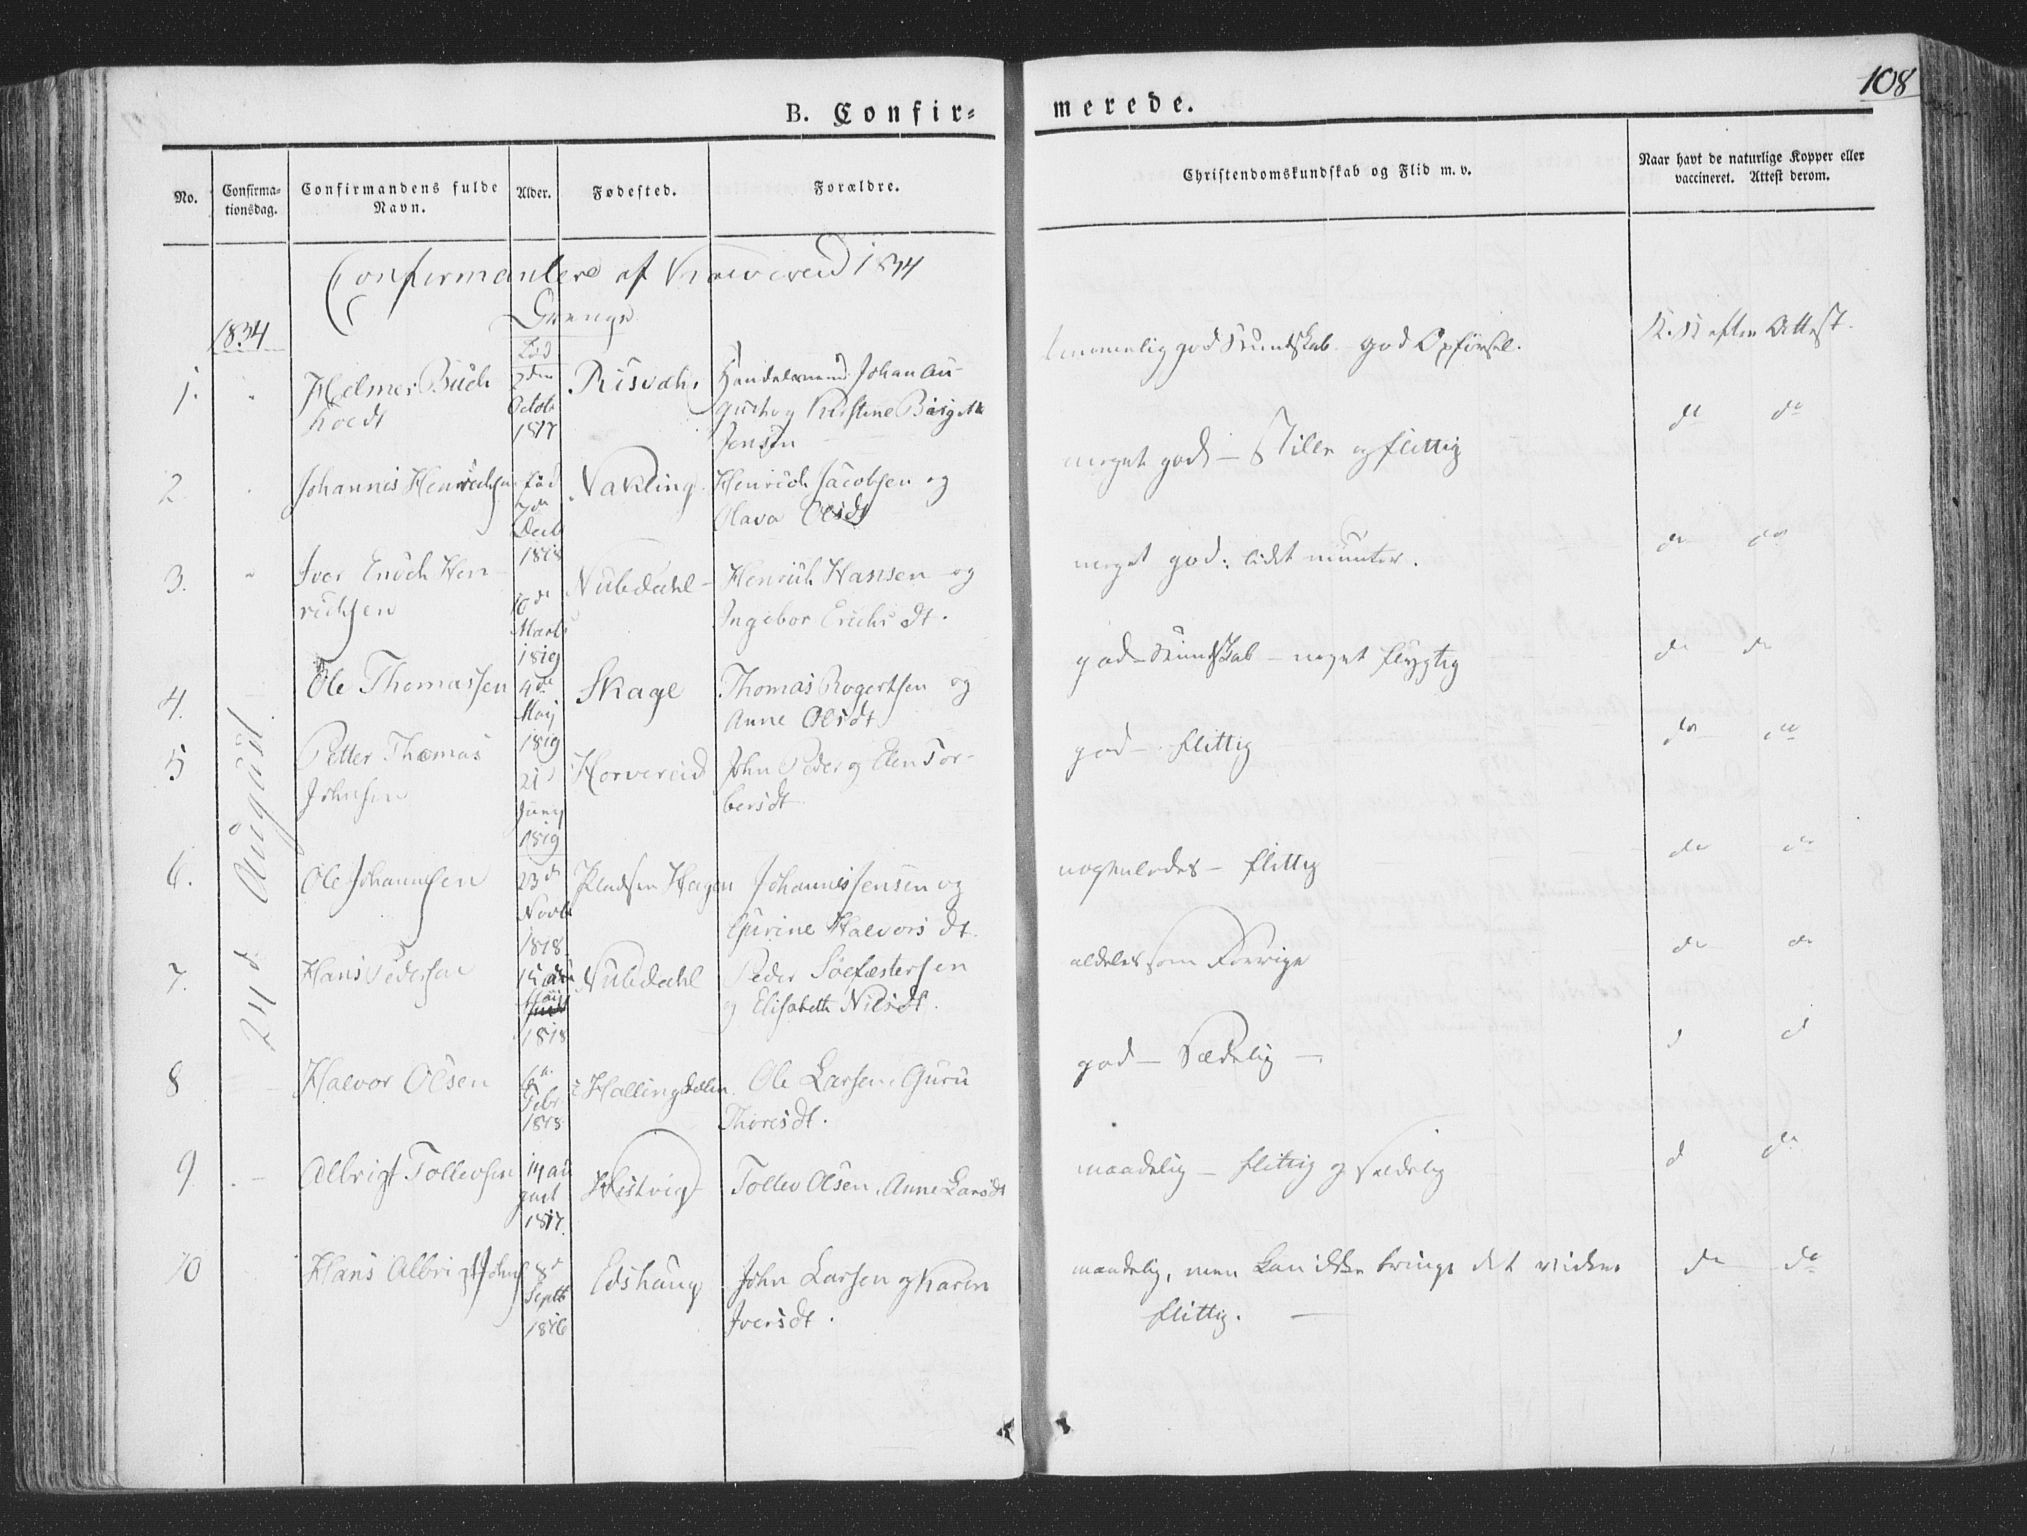 108
B. Confir=
merede.
No.
Confirma-
tionsdag.
Confirmandens fulde
Navn.
Alder.
Fødested.
Forældre.
Christendomskundskab og Flid m. v.
Naar havt de naturlige Kopper eller
vaccineret. Attest derom.
Confirmantere af 1834
Drenge
1834
24d August
1. Helmer Buch
Koedt
Fød
2den
Octob
1817
Risvah
Handelsmand Johan Au-
gust og Kirstine Birgitte
Jensen
temmelig god Kundskab - god Opførsel.
K. K efter Attest.
2. Johannis Henrichsen
fød
7de
Decb
1818
Nakling
Henrich Jacobsen og
Olava Olsdt
meget god - Stille og flittig
do do
3. Iver Enoch Hen
richsen
10de
Marts
1819
Nubdahl
Henrich Hansen og
Ingebor Erichsdt.
meget god; lidt munter.
do do
4. Ole Thomassen
4de
Maj
1819
Skage
Thomas Rogertsen og
Anne Olsdt
god Kundskab - noget flygtig
do do
5 Petter Thomas
Johnsen
21
Juny
1819
Horvereid
John Peder og Elen Tor-
bersdt
god - flittig
do do
6. Ole Johannesen
23d
Novb
1818
Pladsen Hagen
Johannes Jensen og
Gurine Halvorsdt.
nogenledes - flittig
do do
7. Hans Pedersen
15de
1818
Nubdahl
Peder
og Elisabeth Nilsdt.
aldeles som Forrige
do do
8 Halvor Olsen
6d
Febr
1818
i Hallingdalen
Ole Larsen, Guru
Thoresdt.
god - Sædelig -
d d
9 Albrigt Tollevsen
14 au
gust
1817.
Hestvig
Tollev Olsen, Anne Larsdt
maadelig - flittig og sædelig
d do
10 Hans Albrigt Johns
8d
Septb
1816
Edshaug
John Larsen og Karen
Iversdt.
maadelig, men kan ikke bringe det videre
flittig.
do do